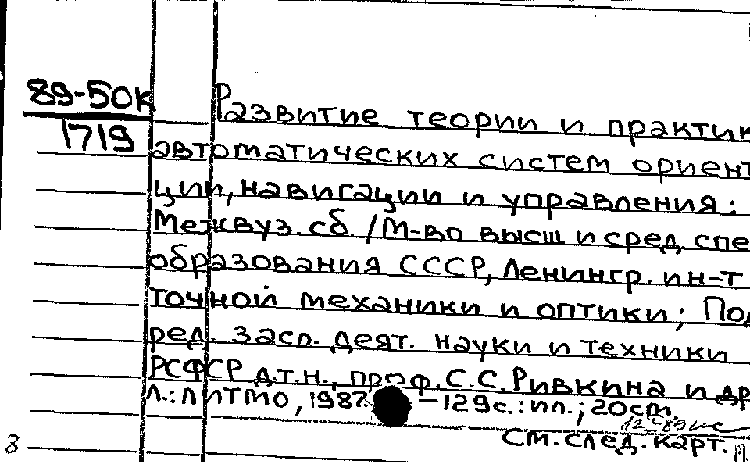 89-50к
1719
Развитие теории и практик
автоматических систем ориент
ции, навигации и управления:
Межвуз. сб. /М-во высш и сред. спе
образования СССР, Ленингр. ин-т
точной механики и оптики; Под
ред. засл. деят. науки и техники
РСФСР д.т.н., проф. С.С. Ривкина и др
Л.: ЛИТМО, 1987 – 129с.: ил.; 20cm.
См. след. карт.